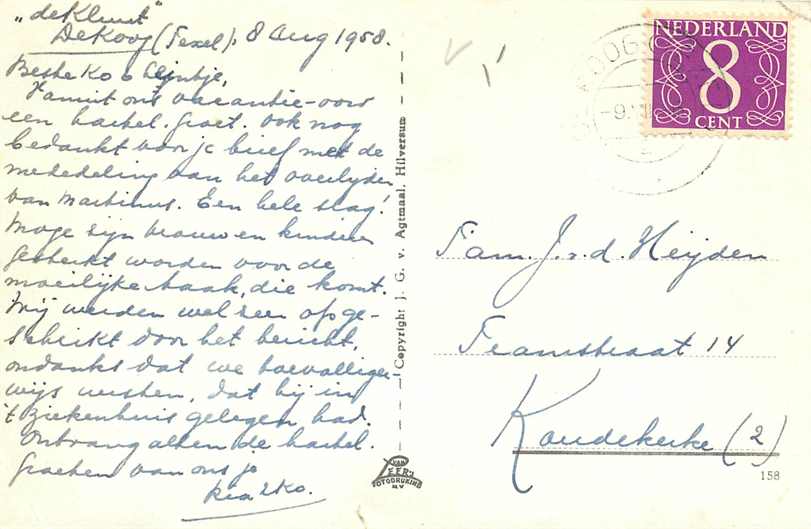 "de Kluut"
De Koog (Texel). 8 Aug 1958.
Beste Ko & Lijntje,
Vanuit ons vacantie-oord
een hartel. groet. Ook nog
bedankt voor je brief met de
mededeling van het overlijden
van Martinus. Een hele slag!
Moge zijn vrouw en kinderen
gesterkt worden voor de
moeilijke taak, die komt.
Wij werden wel zeer opge-
schrikt door het bericht,
ondanks dat we toevalliger-
wijs wisten, dat hij in
't ziekenhuis gelegen had.
Ontvang allen de hartel.
groeten van ons
Ria & Ko.
Copyright J. G. v. Agtmaal, Hilversum
VAN LEER'S
FOTODRUKIND.
N.V.
NEDERLAND
8
CENT
Fam. J. v. d. Heijden
Tramstraat 14
Koudekerke (2)
158